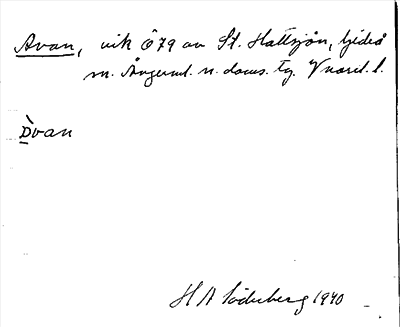 Avan, vik Ö 79 av St. Hattsjön, Gideå
sn. Ångerml. n. doms. tg. Vnorrl. l.
Òvan
H A Söderberg 1940